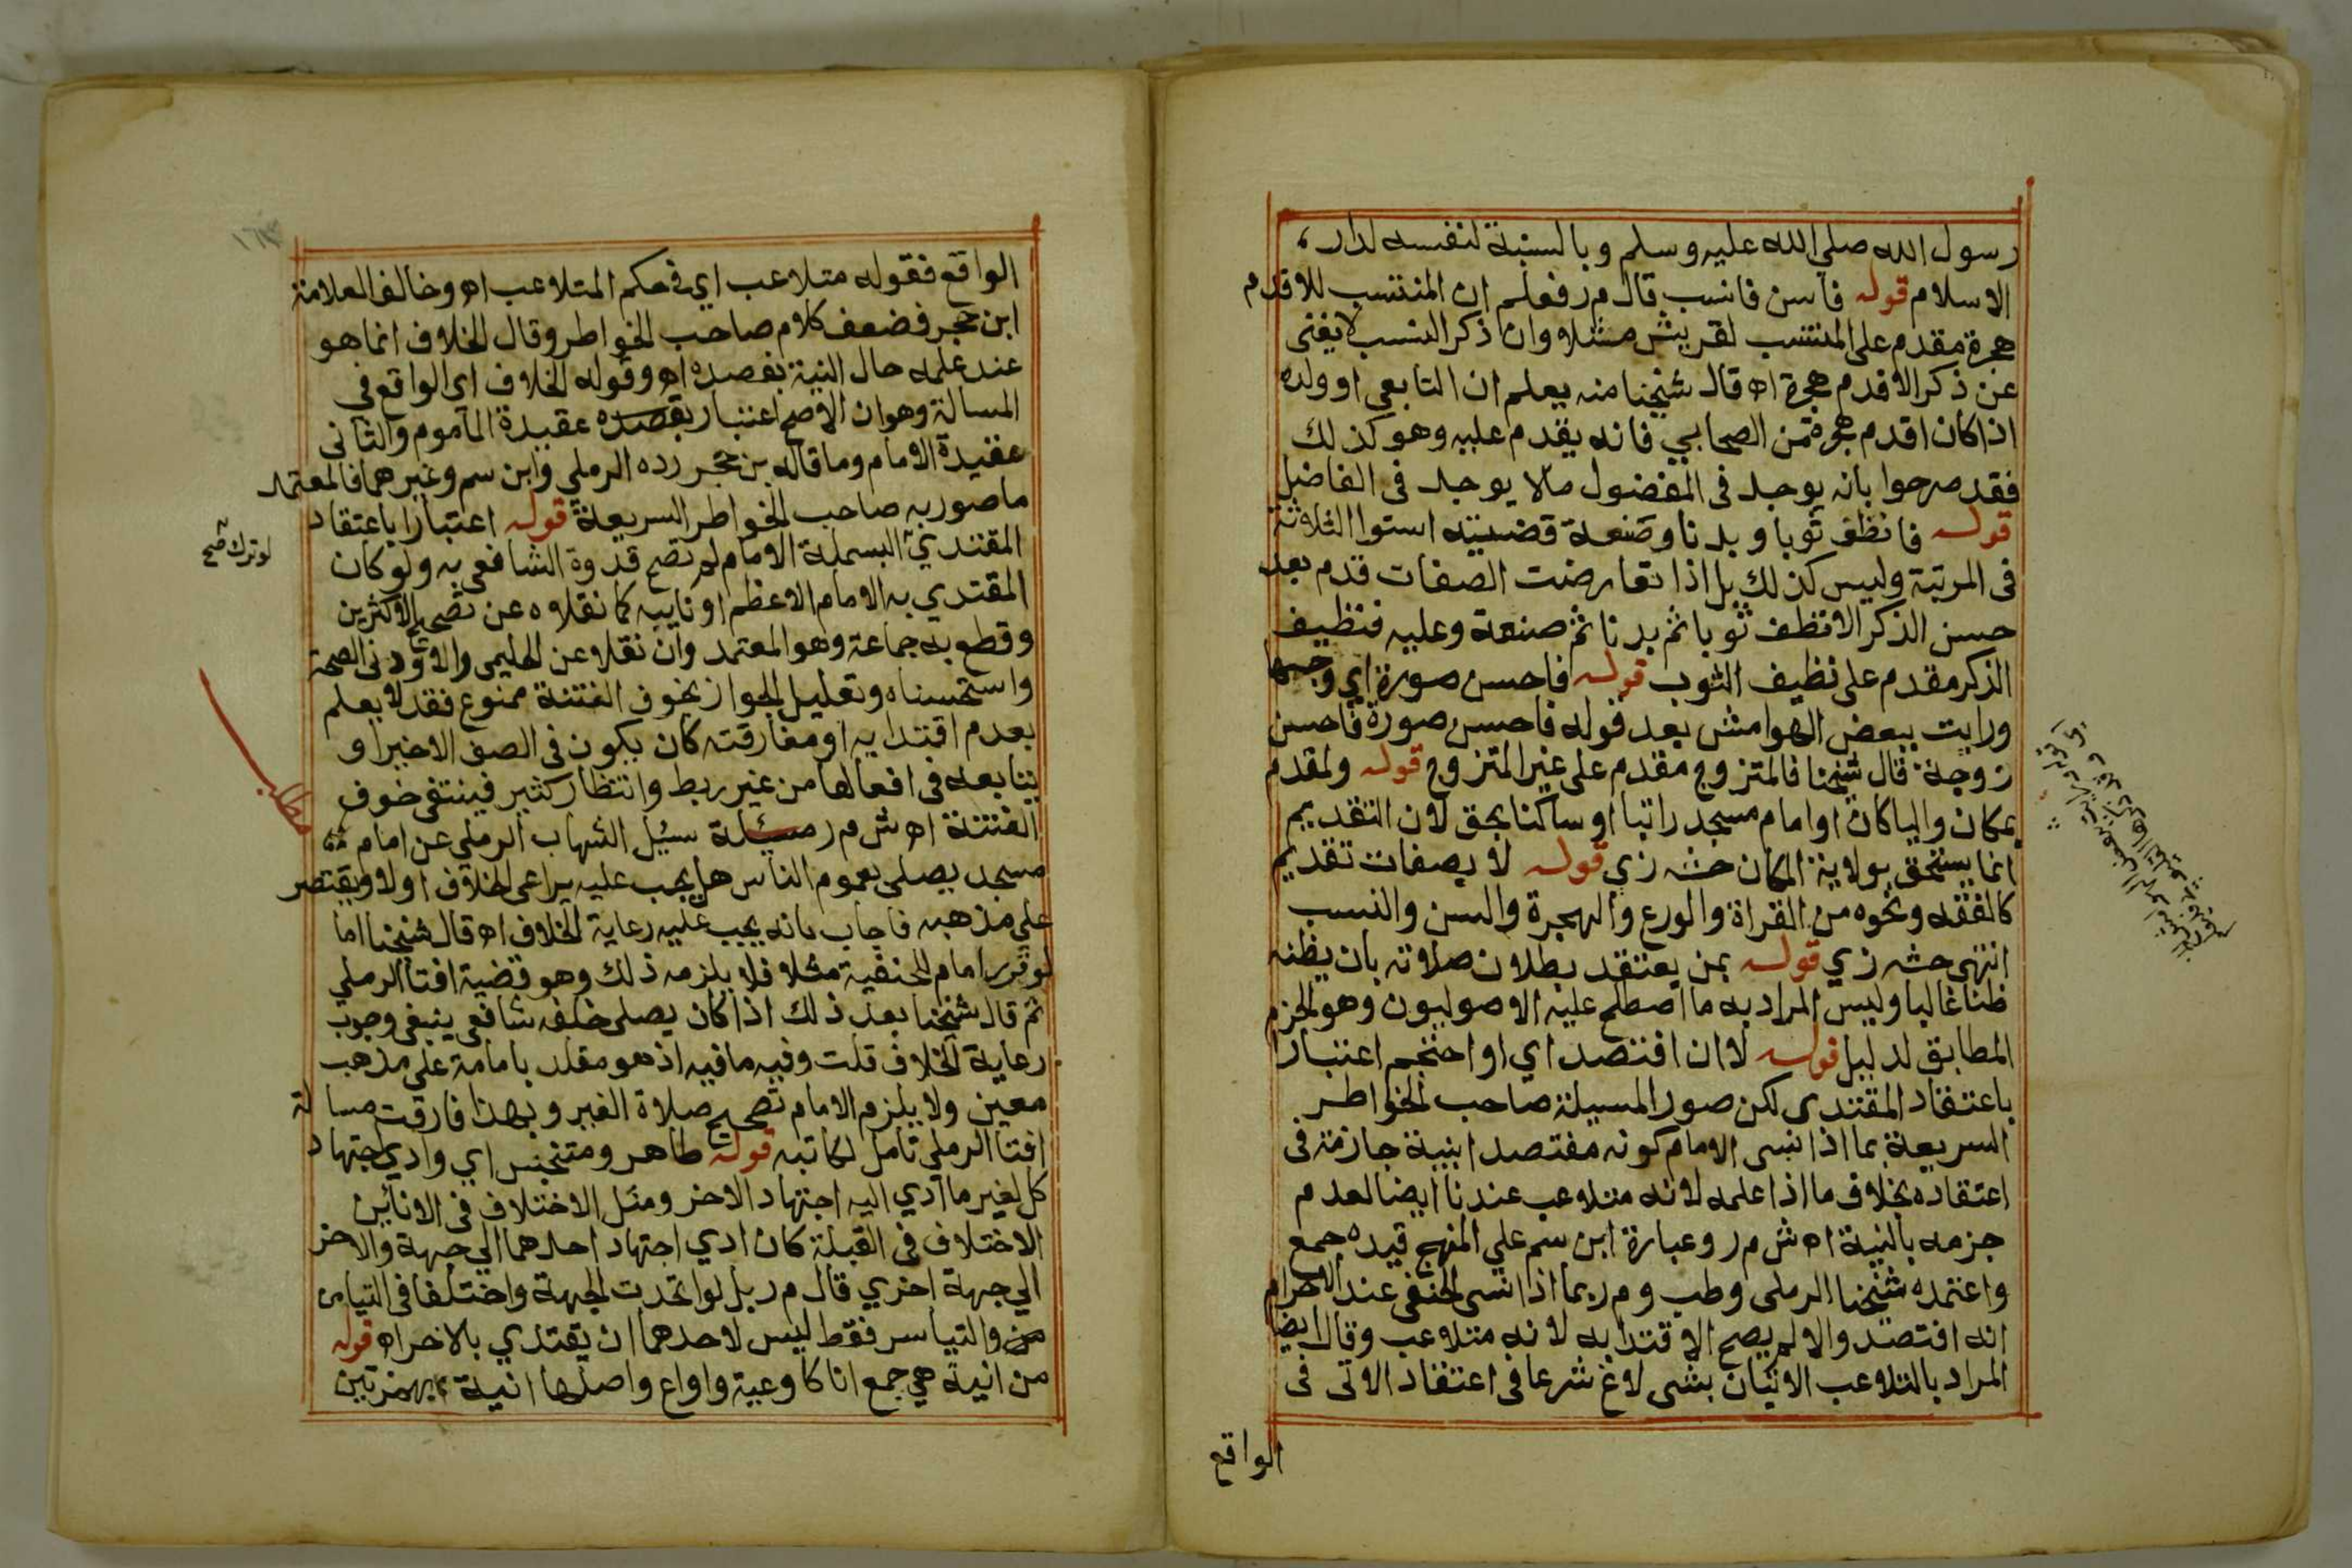 رسول الله صلي الله عليه وسلم وبالنسبة لنفسه لدار
الاسلام قوله فاسن فانسب قال م ر فعلم ان المنتسب للاقدم
هجرة مقدم علي المنتسب لقريش مثلا وان ذكر النسب لا يغني
عن ذكر الاقدم هجرة اه قال شيخنا منه يعلم ان التابعي او ولده
اذا كان اقدم هجرة من الصحابي فانه يقدم عليه وهو كذلك
فقد صرحوا بانه يوجد في المفضول ما لا يوجد في الفاضل
قوله فانظف ثوبا وبدنا وصنعة قضيته استوا الثلاثة
في المرتبة وليس كذلك بل اذا تعارضت الصفات قدم بعد
حسن الذكر الانظف ثوبا ثم بدنا ثم صنعة وعليه فنظيف
الذكر مقدم علي نظيف الثوب قوله فاحسن صورة اي وجها
ورايت ببعض الهوامش بعد قوله فاحسن صورة فاحسن
زوجة قال شيخنا فالمتزوج مقدم علي غير المتزوج قوله ولمقدم
بمكان واليا كان او امام مسجد راتبا او ساكنا بحق لان التقديم
انما يستحق بولاية المكان حشه زي قوله لا بصفات تقديم
كالفقه ونحوه من القراة والورع والهجرة والسن والنسب
انتهي حشه زي قوله بمن يعتقد بطلان صلاته بان يظنه
ظنا غالبا وليس المراد به ما اصطلح عليه الاصوليون وهو الجزم
المطابق لدليل قوله لا ان افتصد اي او احتجم اعتبارا
باعتقاد المقتدي لكن صور المسيلة صاحب الخواطر
السريعة بما اذا نسي الامام كونه مفتصدا بنية جازمة في
اعتقاده بخلاف ما اذا علمه لانه متلاعب عندنا ايضا لعدم
جزمه بالنية اه ش م ر وعبارة ابن سم علي المنهج قيده جمع
واعتمده شيخنا الرملي وطب و م ر بما اذا نسي الحنفي عند الاحرام
انه افتصد والا لم يصح الاقتدا به لانه متلاعب وقال ايضا
المراد بالتلاعب الاتيان بشي لاغ شرعا في اعتقاد الاتي في
الواقع
الواقع فقوله متلاعب اي في حكم المتلاعب اه وخالف العلامة
ابن حجر فضعف كلام صاحب الخواطر وقال الخلاف انما هو
عند علمه حال النية بفصده اه وقوله الخلاف اي الواقع في
المسالة وهو ان الاصح اعتبار بقصده عقيدة الماموم والثاني
عقيدة الامام وما قاله بن حجر رده الرملي وابن سم وغيرهما فالمعتمد
ما صور به صاحب الخواطر السريعة قوله اعتبارا باعتقاد
المقتدي البسملة الامام لم تصح قدوة الشافعي به ولو كان
لو ترك صح
المقتدي به الامام الاعظم او نايبه كما نقلاه عن تصحيح الاكثرين
وقطع به جماعة وهو المعتمد وان نقلا عن الحليمي والاودني الصحة
واستحسناه وتعليل الجواز بخوف الفتنة ممنوع فقد لا يعلم
بعدم اقتدايه او مفارقته كان يكون في الصف الاخير او
يتابعه في افعالها من غير ربط وانتظار كثير فينتفي خوف
مطلب
الفتنة اه ش م ر مسيلة سئل الشهاب الرملي عن امام
مسجد يصلي بعموم الناس هل يجب عليه يراعي الخلاف اولا ويقتصر
علي مذهبه فاجاب بانه يجب عليه رعاية الخلاف اه قال شيخنا اما
لو قرر امام للحنفية مثلا فلا يلزمه ذلك وهو قضية افتا الرملي
ثم قال شيخنا بعد ذلك اذا كان يصلي خلفه شافعي ينبغي وجوب
رعاية الخلاف قلت وفيه ما فيه اذ هو مقلد بامامة علي مذهب
معين ولا يلزم الامام تصحيح صلاة الغير وبهذا فارقت مسالة
افتا الرملي تامل لكاتبه قوله طاهر ومتنجس اي وادي اجتهاد
كل لغير ما ادي اليه اجتهاد الاخر ومثل الاختلاف في الانائين
الاختلاف في القبلة كان ادي اجتهاد احدهما الي جهة والاخر
الي جهة اخري قال م ر بل لو اتحدت الجهة واختلفا في التيامن
من والتياسر فقط ليس لاحدهما ان يقتدي بالاخر اه قوله
من انية هي جمع انا كاوعية واواع واصلها اانية بهمزتين